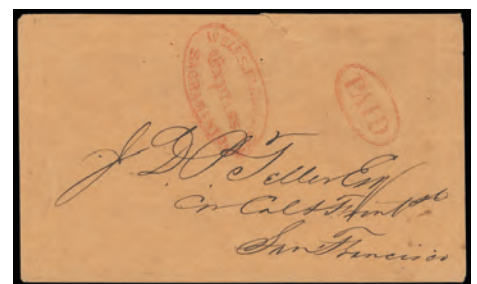 WELLS, FARGO
EXPRESS
PAID
J. D. P. Teller Esqr
Cor Cal & Front Sts
San Francisco